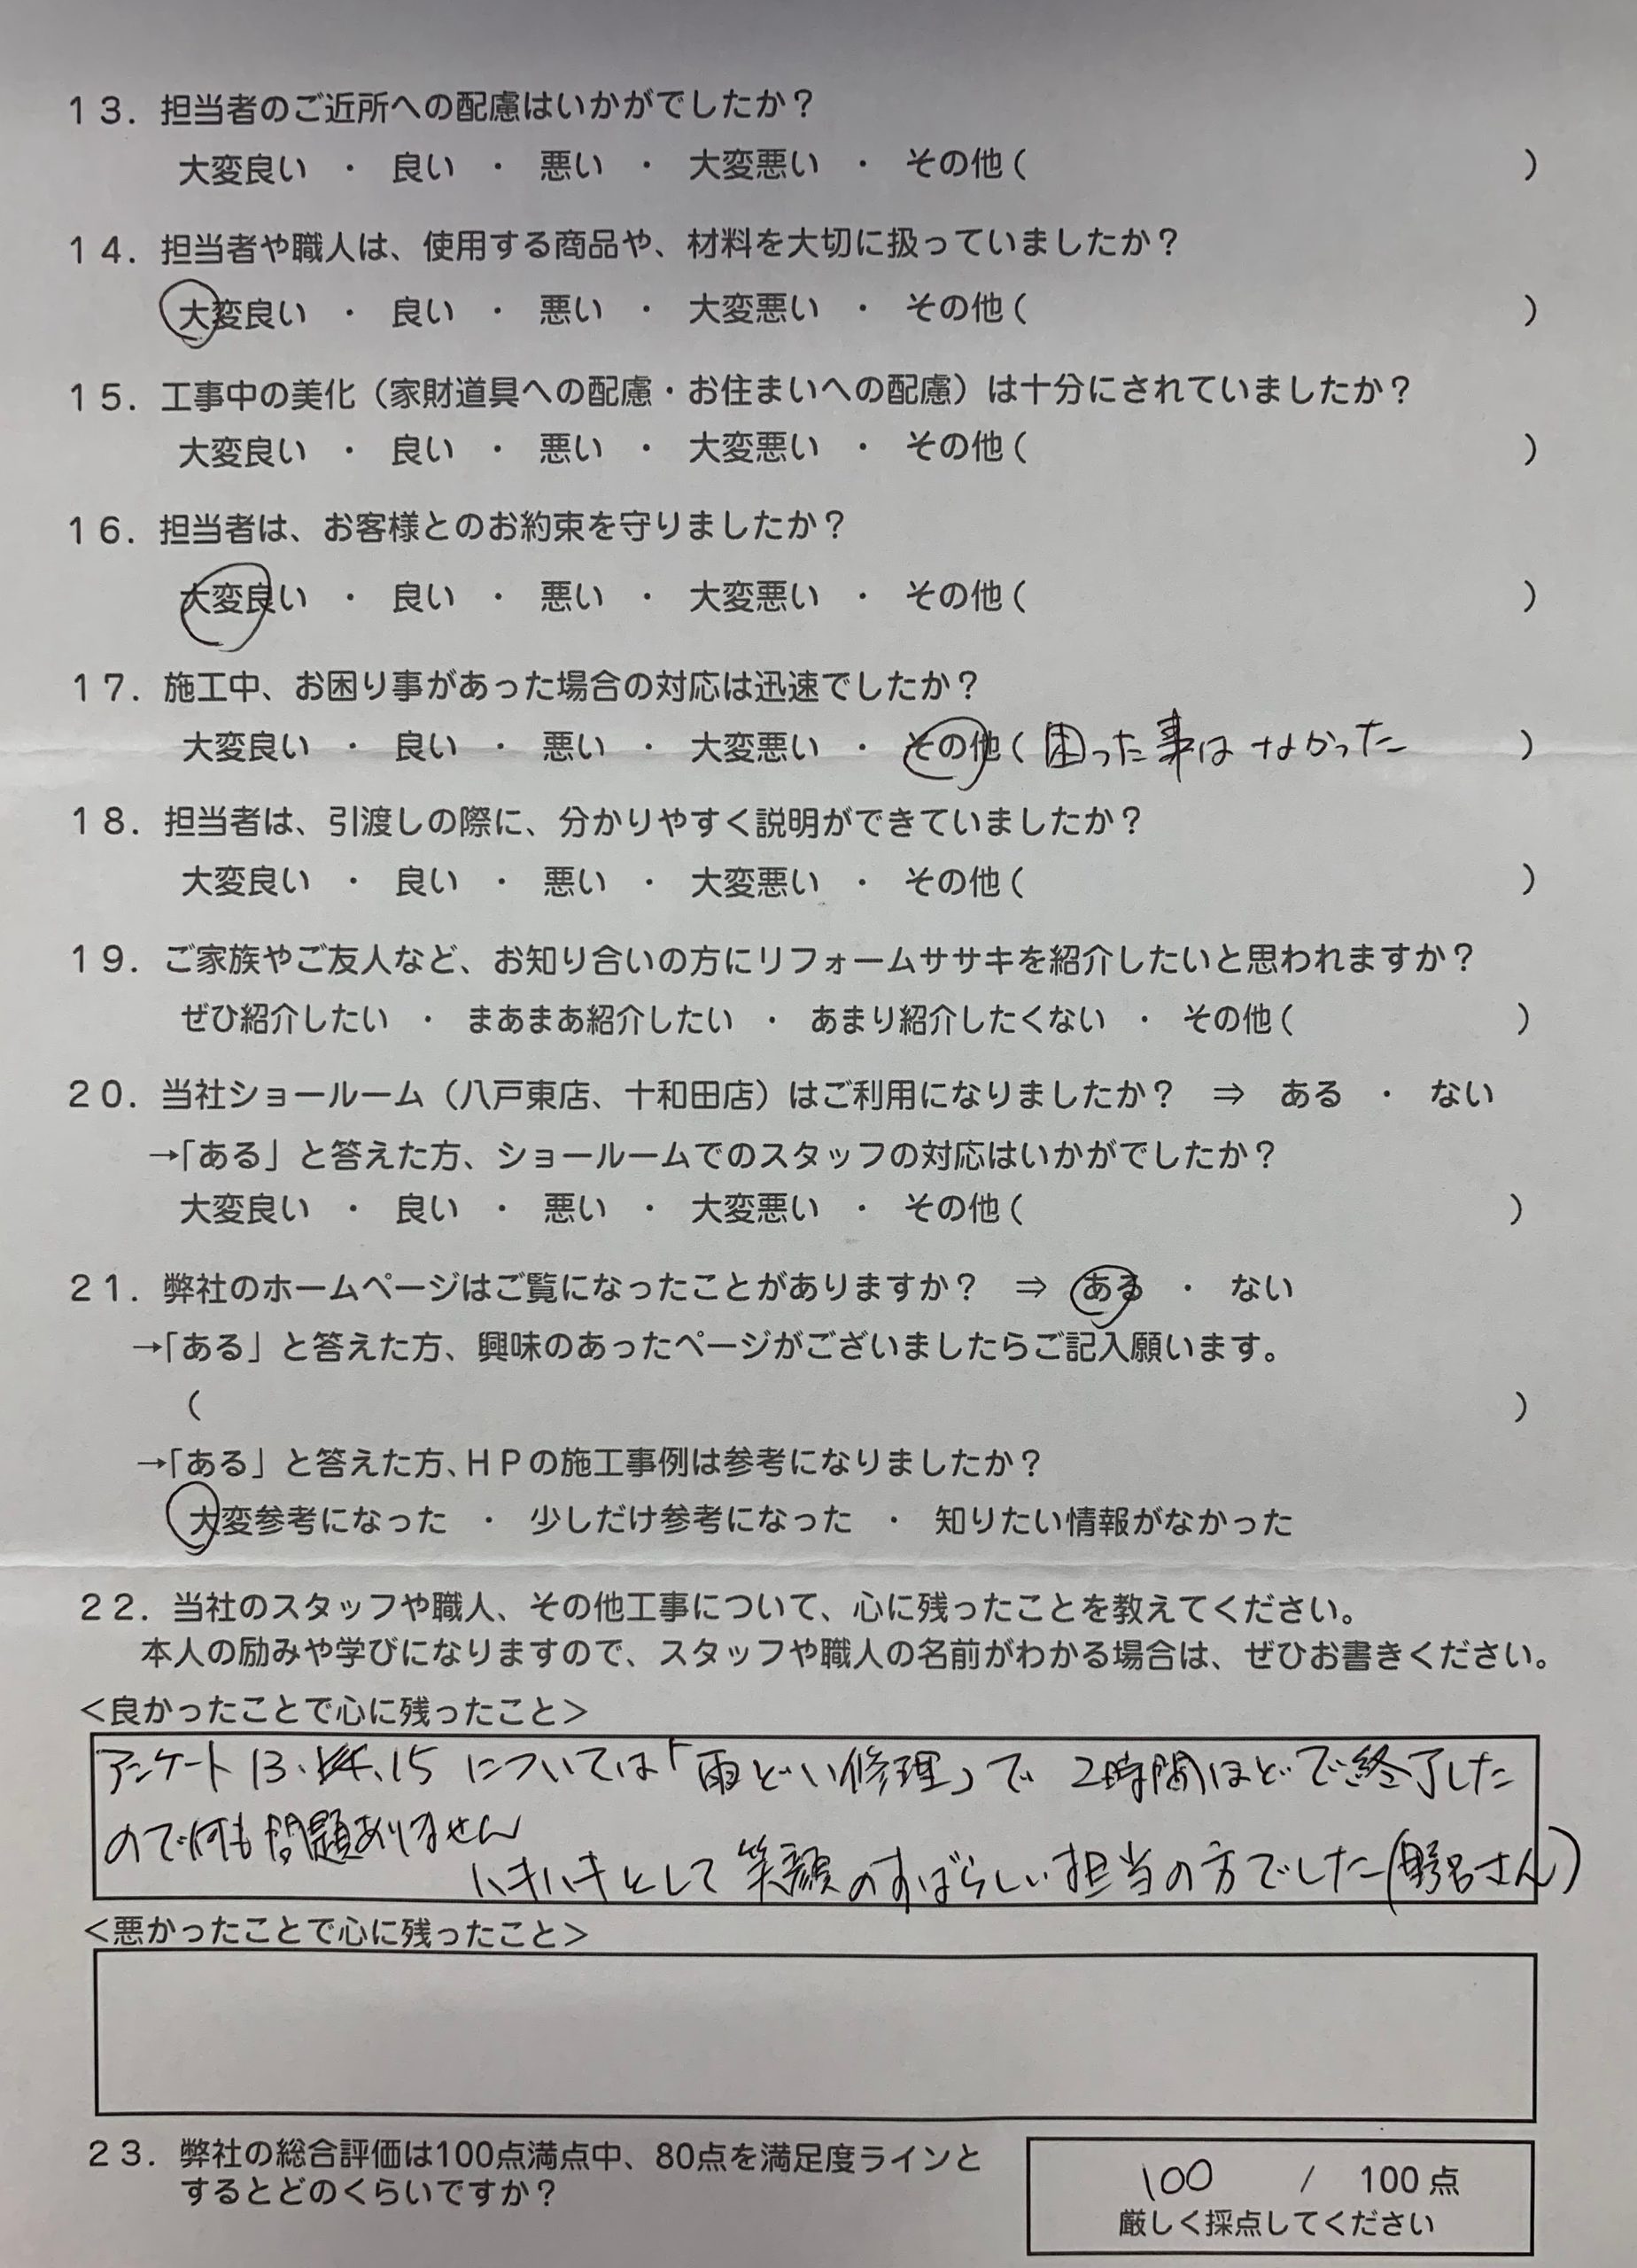 13. 担当者のご近所への配慮はいかがでしたか？
大変良い ・ 良い ・ 悪い ・ 大変悪い ・ その他（ ）
14. 担当者や職人は、使用する商品や、材料を大切に扱っていましたか？
大変良い ・ 良い ・ 悪い ・ 大変悪い ・ その他（ ）
15. 工事中の美化（家財道具への配慮・お住まいへの配慮）は十分にされていましたか？
大変良い ・ 良い ・ 悪い ・ 大変悪い ・ その他（ ）
16. 担当者は、お客様とのお約束を守りましたか？
大変良い ・ 良い ・ 悪い ・ 大変悪い ・ その他（ ）
17. 施工中、お困り事があった場合の対応は迅速でしたか？
大変良い ・ 良い ・ 悪い ・ 大変悪い ・ その他（ 困った事はなかった ）
18. 担当者は、引渡しの際に、分かりやすく説明ができていましたか？
大変良い ・ 良い ・ 悪い ・ 大変悪い ・ その他（ ）
19. ご家族やご友人など、お知り合いの方にリフォームササキを紹介したいと思われますか？
ぜひ紹介したい ・ まあまあ紹介したい ・ あまり紹介したくない ・ その他（ ）
20. 当社ショールーム（八戸東店、十和田店）はご利用になりましたか？ ⇒ ある ・ ない
→「ある」と答えた方、ショールームでのスタッフの対応はいかがでしたか？
大変良い ・ 良い ・ 悪い ・ 大変悪い ・ その他（ ）
21. 弊社のホームページはご覧になったことがありますか？ ⇒ ある ・ ない
→「ある」と答えた方、興味のあったページがございましたらご記入願います。
（ ）
→「ある」と答えた方、ＨＰの施工事例は参考になりましたか？
大変参考になった ・ 少しだけ参考になった ・ 知りたい情報がなかった
22. 当社のスタッフや職人、その他工事について、心に残ったことを教えてください。
本人の励みや学びになりますので、スタッフや職人の名前がわかる場合は、ぜひお書きください。
＜良かったことで心に残ったこと＞
アンケート 13、15 については「雨どい修理」で 2時間ほどで終了した
ので何も問題ありません
ハキハキとして笑顔のすばらしい担当の方でした（野呂さん）
＜悪かったことで心に残ったこと＞
23. 弊社の総合評価は100点満点中、80点を満足度ラインと
するとどのくらいですか？
100 / 100点
厳しく採点してください